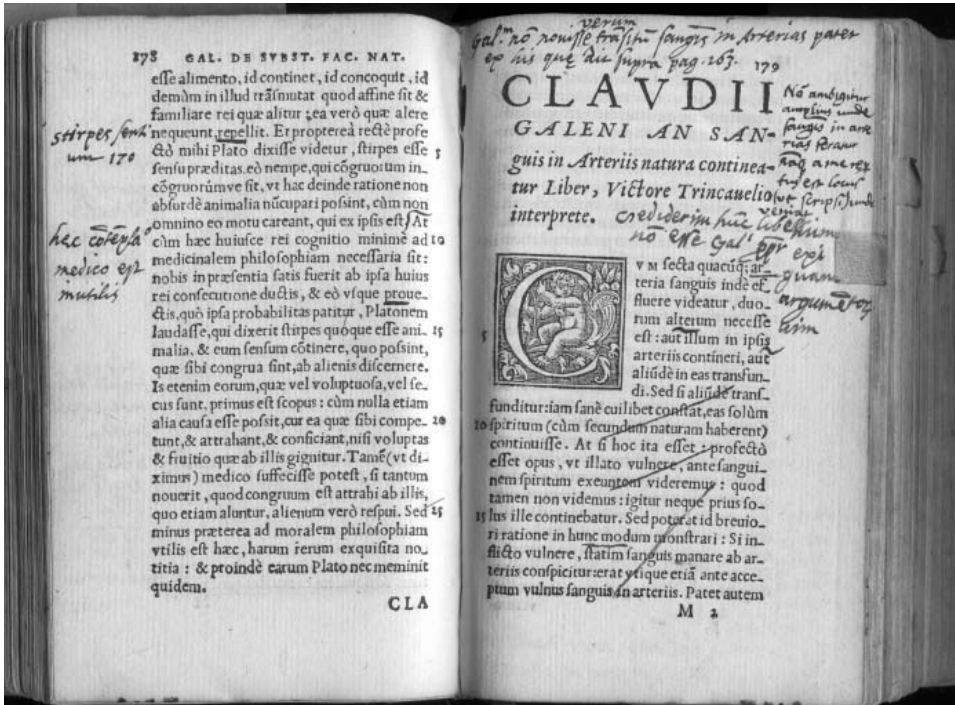 178 GAL. DE SVBST. FAC. NAT.
esse alimento, id continet, id concoquit, id
demùm in illud trāsmutat quod affine sit &
familiare rei quæ alitur; ea verò quæ alere
nequeunt, repellit. Et propterea rectè profe
ctò mihi Plato dixisse videtur, stirpes esse 5
sensu præditas. eò nempe, qui cōgruorum in-
cōgruorúmve sit, vt hac deinde ratione non
absurdè animalia nūcupari possint, cùm non
omnino eo motu careant, qui ex ipsis est. At
cùm hæc huiusce rei cognitio minimè ad 10
medicinalem philosophiam necessaria sit:
nobis in præsentia satis fuerit ab ipsa huius
rei consecutione ductis, & eò vsque proue-
ctis, quò ipsa probabilitas patitur, Platonem
laudasse, qui dixerit stirpes quoque esse ani- 15
malia, & eum sensum cōtinere, quo possint,
quæ sibi congrua sint, ab alienis discernere.
Is etenim eorum, quæ vel voluptuosa, vel se-
cus sunt, primus est scopus: cùm nulla etiam
alia causa esse possit, cur ea quæ sibi compe- 20
tunt, & attrahant, & conficiant, nisi voluptas
& fruitio quæ ab illis gignitur. Tamē (vt di-
ximus) medico suffecisse potest, si tantum
nouerit, quod congruum est attrahi ab illis,
quo etiam aluntur, alienum verò respui. Sed 25
minus præterea ad moralem philosophiam
vtilis est hæc, harum rerum exquisita no-
titia: & proindè earum Plato nec meminit
quidem.
CLA
stirpes senti
um 170
hec cōtēpla°
medico est
inutilis
verum
Gal.m nō novisse trāsitū sangis in Arterias patet
ex his que dic supra pag. 163.
179
CLAVDII
GALENI AN SAN-
guis in Arteriis natura continea-
tur Liber, Victore Trincauelio
interprete.
Nō ambigitur
amplius unde
sangis in arte
rias feratur
est locus
unde
veniat
crediderim hūc libellum
nō esse Gal¹ ppr exi
guam
argumētor.
vim
CVM secta quacūq; ar-
teria sanguis indè ef-
fluere videatur, duo-
rum alterum necesse
est: aut illum in ipsis 5
arteriis contineri, aut
aliūdè in eas transfun-
di. Sed si aliūdè trans-
funditur: iam sanè cuilibet constat, eas solùm
10 spiritum (cùm secundum naturam haberent)
continuisse. At si hoc ita esset: profectò
esset opus, vt illato vulnere, ante sangui-
nem spiritum exeuntem videremus: quod
tamen non videmus: igitur neque prius so-
15 lus ille continebatur. Sed poterat id breuio-
ri ratione in hunc modum monstrari: Si in-
flicto vulnere, statim sanguis manare ab ar-
teriis conspicitur: erat vtique etiā ante acce-
ptum vulnus sanguis in arteriis. Patet autem
M 2